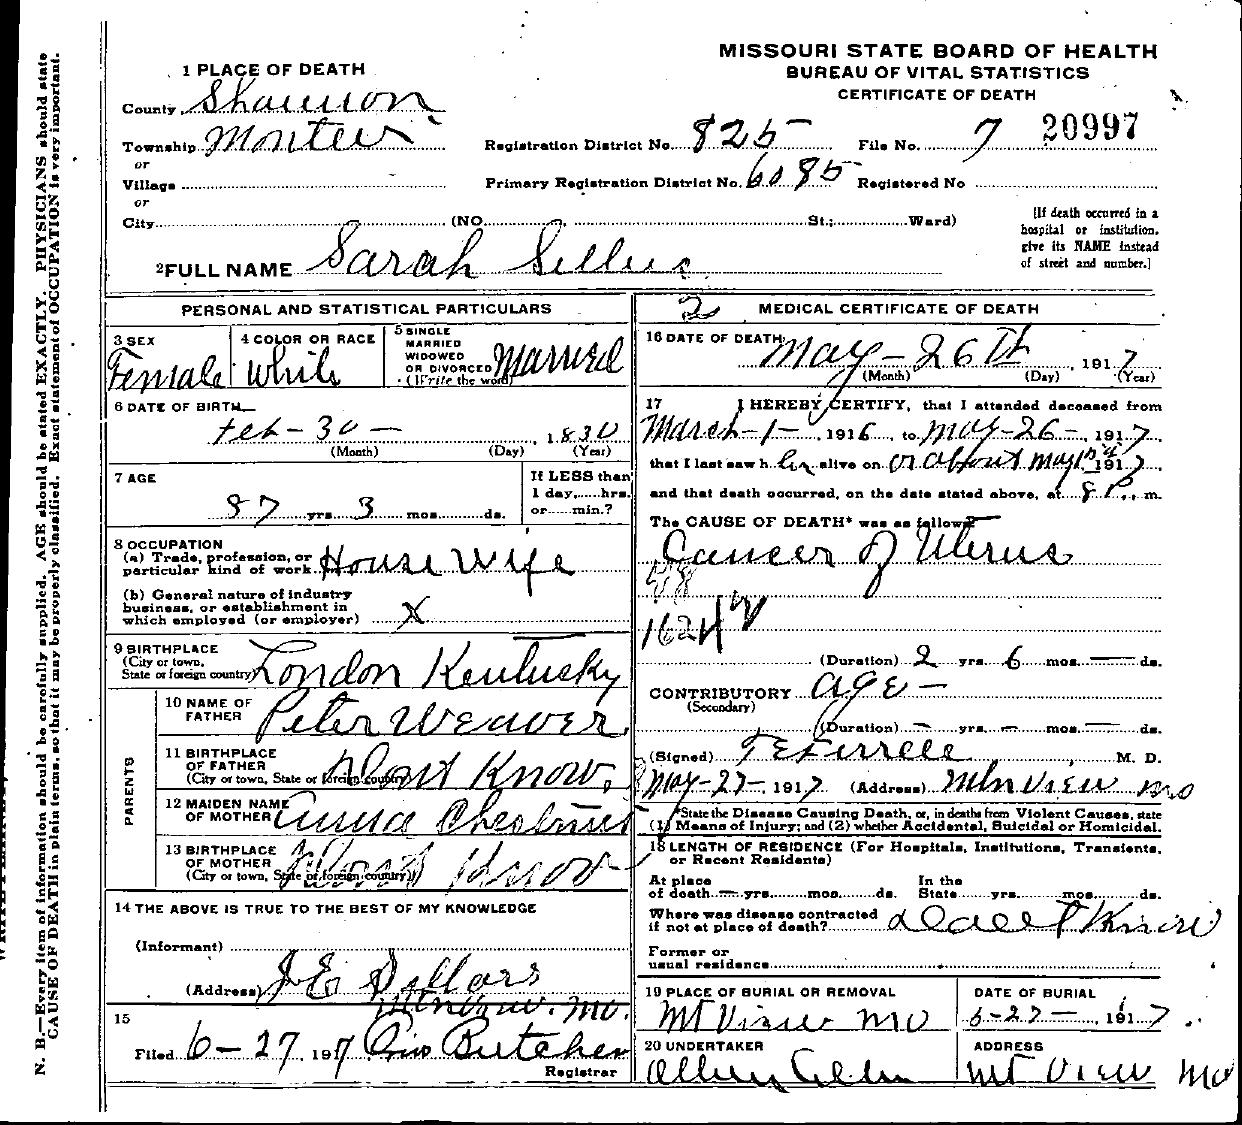 MISSOURI STATE BOARD OF HEALTH
BUREAU OF VITAL STATISTICS
CERTIFICATE OF DEATH
1 PLACE OF DEATH
County Shannon
Township Montier Registration District No. 825 File No. 7 20997
or
Village Primary Registration District No. 6085 Registered No
or
City (NO. St.; Ward)
[If death occurred in a hospital or institution, give its NAME instead of street and number.]
2 FULL NAME Sarah
PERSONAL AND STATISTICAL PARTICULARS
3 SEX Female
4 COLOR OR RACE White
5 SINGLE MARRIED WIDOWED OR DIVORCED (Write the word) Married
6 DATE OF BIRTH
Feb - 30 - , 1830
(Month) (Day) (Year)
7 AGE
87 yrs. 3 mos. ds.
If LESS than 1 day, hrs. or min.?
8 OCCUPATION
(a) Trade, profession, or particular kind of work House Wife
(b) General nature of industry business, or establishment in which employed (or employer) X
9 BIRTHPLACE
(City or town, State or foreign country) London Kentucky
PARENTS
10 NAME OF FATHER Peter Weaver
11 BIRTHPLACE OF FATHER
(City or town, State or foreign country) Dont Know.
12 MAIDEN NAME OF MOTHER
13 BIRTHPLACE OF MOTHER
(City or town, State or foreign country) Dont Know
14 THE ABOVE IS TRUE TO THE BEST OF MY KNOWLEDGE
(Informant)
J E Sellars
(Address) Mtn View. Mo.
15
Filed 6-27 1917 Butcher
Registrar
2 MEDICAL CERTIFICATE OF DEATH
16 DATE OF DEATH May - 26th , 1917
(Month) (Day) (Year)
17 I HEREBY CERTIFY, that I attended deceased from
March - 1 - , 1916, to May - 26 - , 1917,
that I last saw her alive on or about May 1st 1917
and that death occurred, on the date stated above, at 8 P. m.
The CAUSE OF DEATH* was as follows
Cancer of Uterus
(Duration) 2 yrs. 6 mos. — ds.
CONTRIBUTORY Age -
(Secondary)
(Duration) — yrs. — mos. — ds.
(Signed) M. D.
May - 27 - , 1917 (Address) Mtn View Mo
*State the Disease Causing Death, or, in deaths from Violent Causes, state
(1) Means of Injury; and (2) whether Accidental, Suicidal or Homicidal.
18 LENGTH OF RESIDENCE (For Hospitals, Institutions, Transients, or Recent Residents)
At place of death — yrs. mos. ds. In the State yrs. mos. ds.
Where was disease contracted if not at place of death? Dont Know
Former or usual residence
19 PLACE OF BURIAL OR REMOVAL
Mt View Mo
DATE OF BURIAL
5-27- , 1917.
20 UNDERTAKER
ADDRESS
Mt View Mo
N. B.—Every item of information should be carefully supplied. AGE should be stated EXACTLY. PHYSICIANS should state
CAUSE OF DEATH in plain terms, so that it may be properly classified. Exact statement of OCCUPATION is very important.